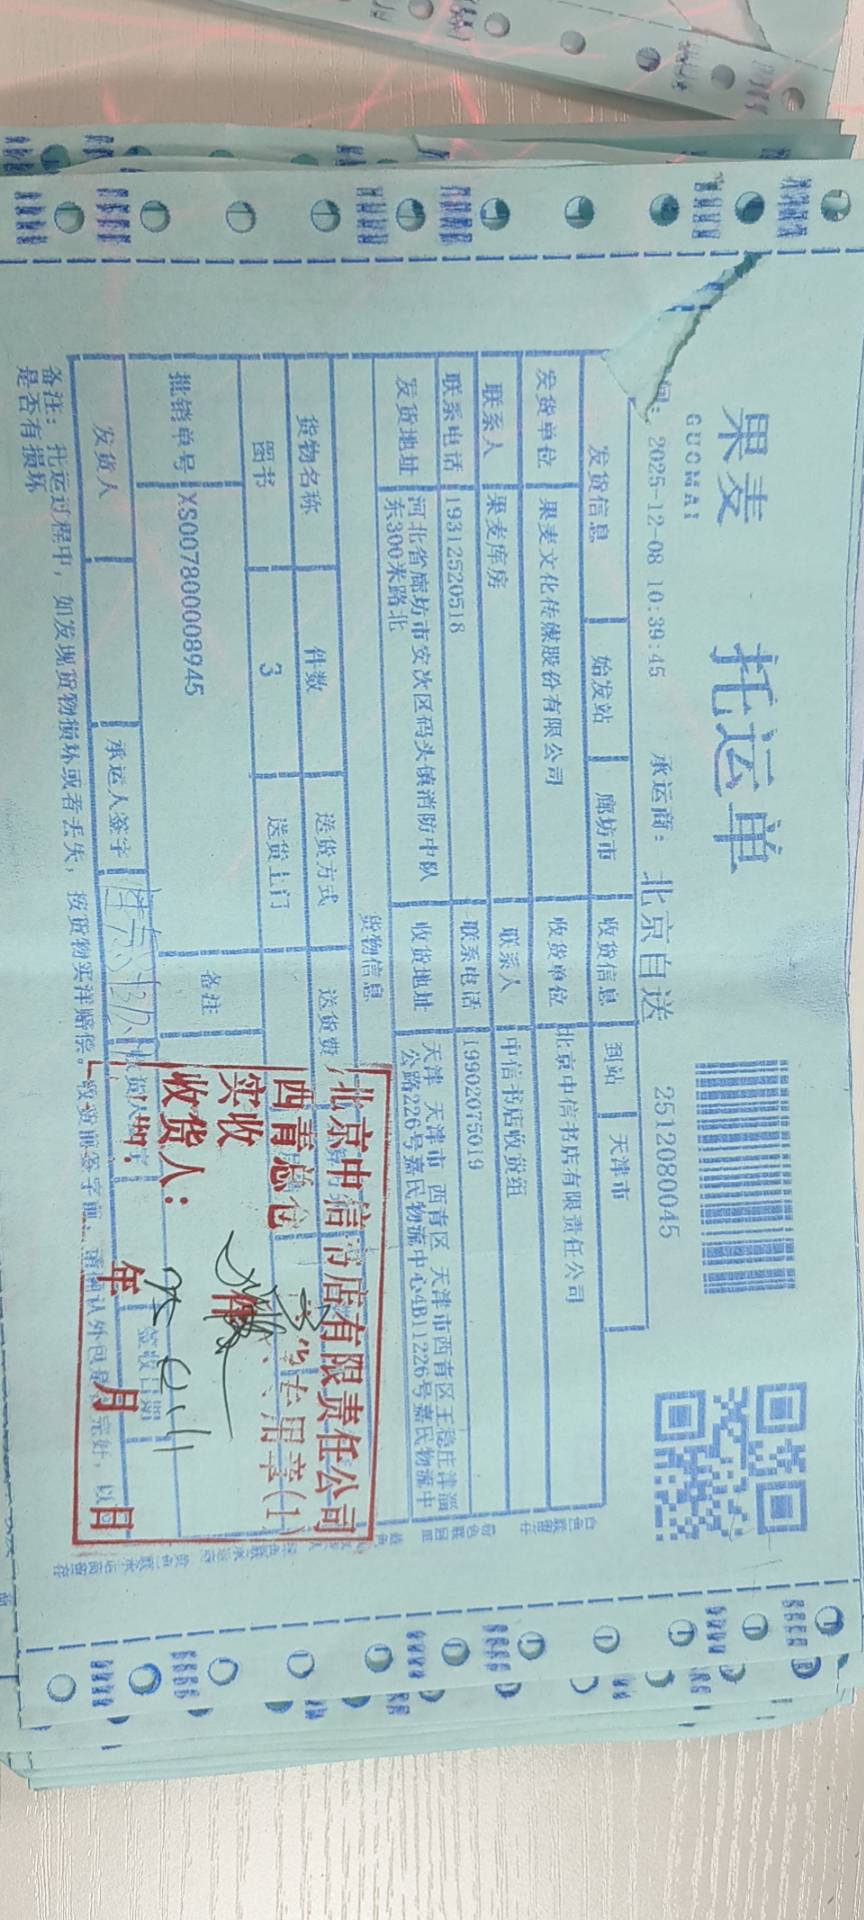 果麦 托运单
GUOMAI
间: 2025-12-08 10:39:45 承运商: 北京自送 2512080045
发货信息 始发站 廊坊市 收货信息 到站 天津市
发货单位 果麦文化传媒股份有限公司 收货单位 北京中信书店有限责任公司
联系人 果麦库房 联系人 中信书店收货组
联系电话 19312520518 联系电话 19902075019
发货地址 河北省廊坊市安次区码头镇消防中队东300米路北 收货地址 天津 天津市 西青区 天津市西青区王稳庄津淄公路226号嘉民物流中心4B11226号嘉民物流中
货物信息
货物名称 件数 送货方式 送货费
图书 3 送货上门
批销单号 XS007800008945 备注
发货人 承运人签字 收货人签字 签收日期
备注: 托运过程中, 如发现货物损坏或者丢失, 按货物实洋赔偿。收货前签字前, 请确认外包是否完好, 以
是否有损坏
北京中信书店有限责任公司
西青总仓 收货专用章(1)
实收 件
收货人:
年 月 日